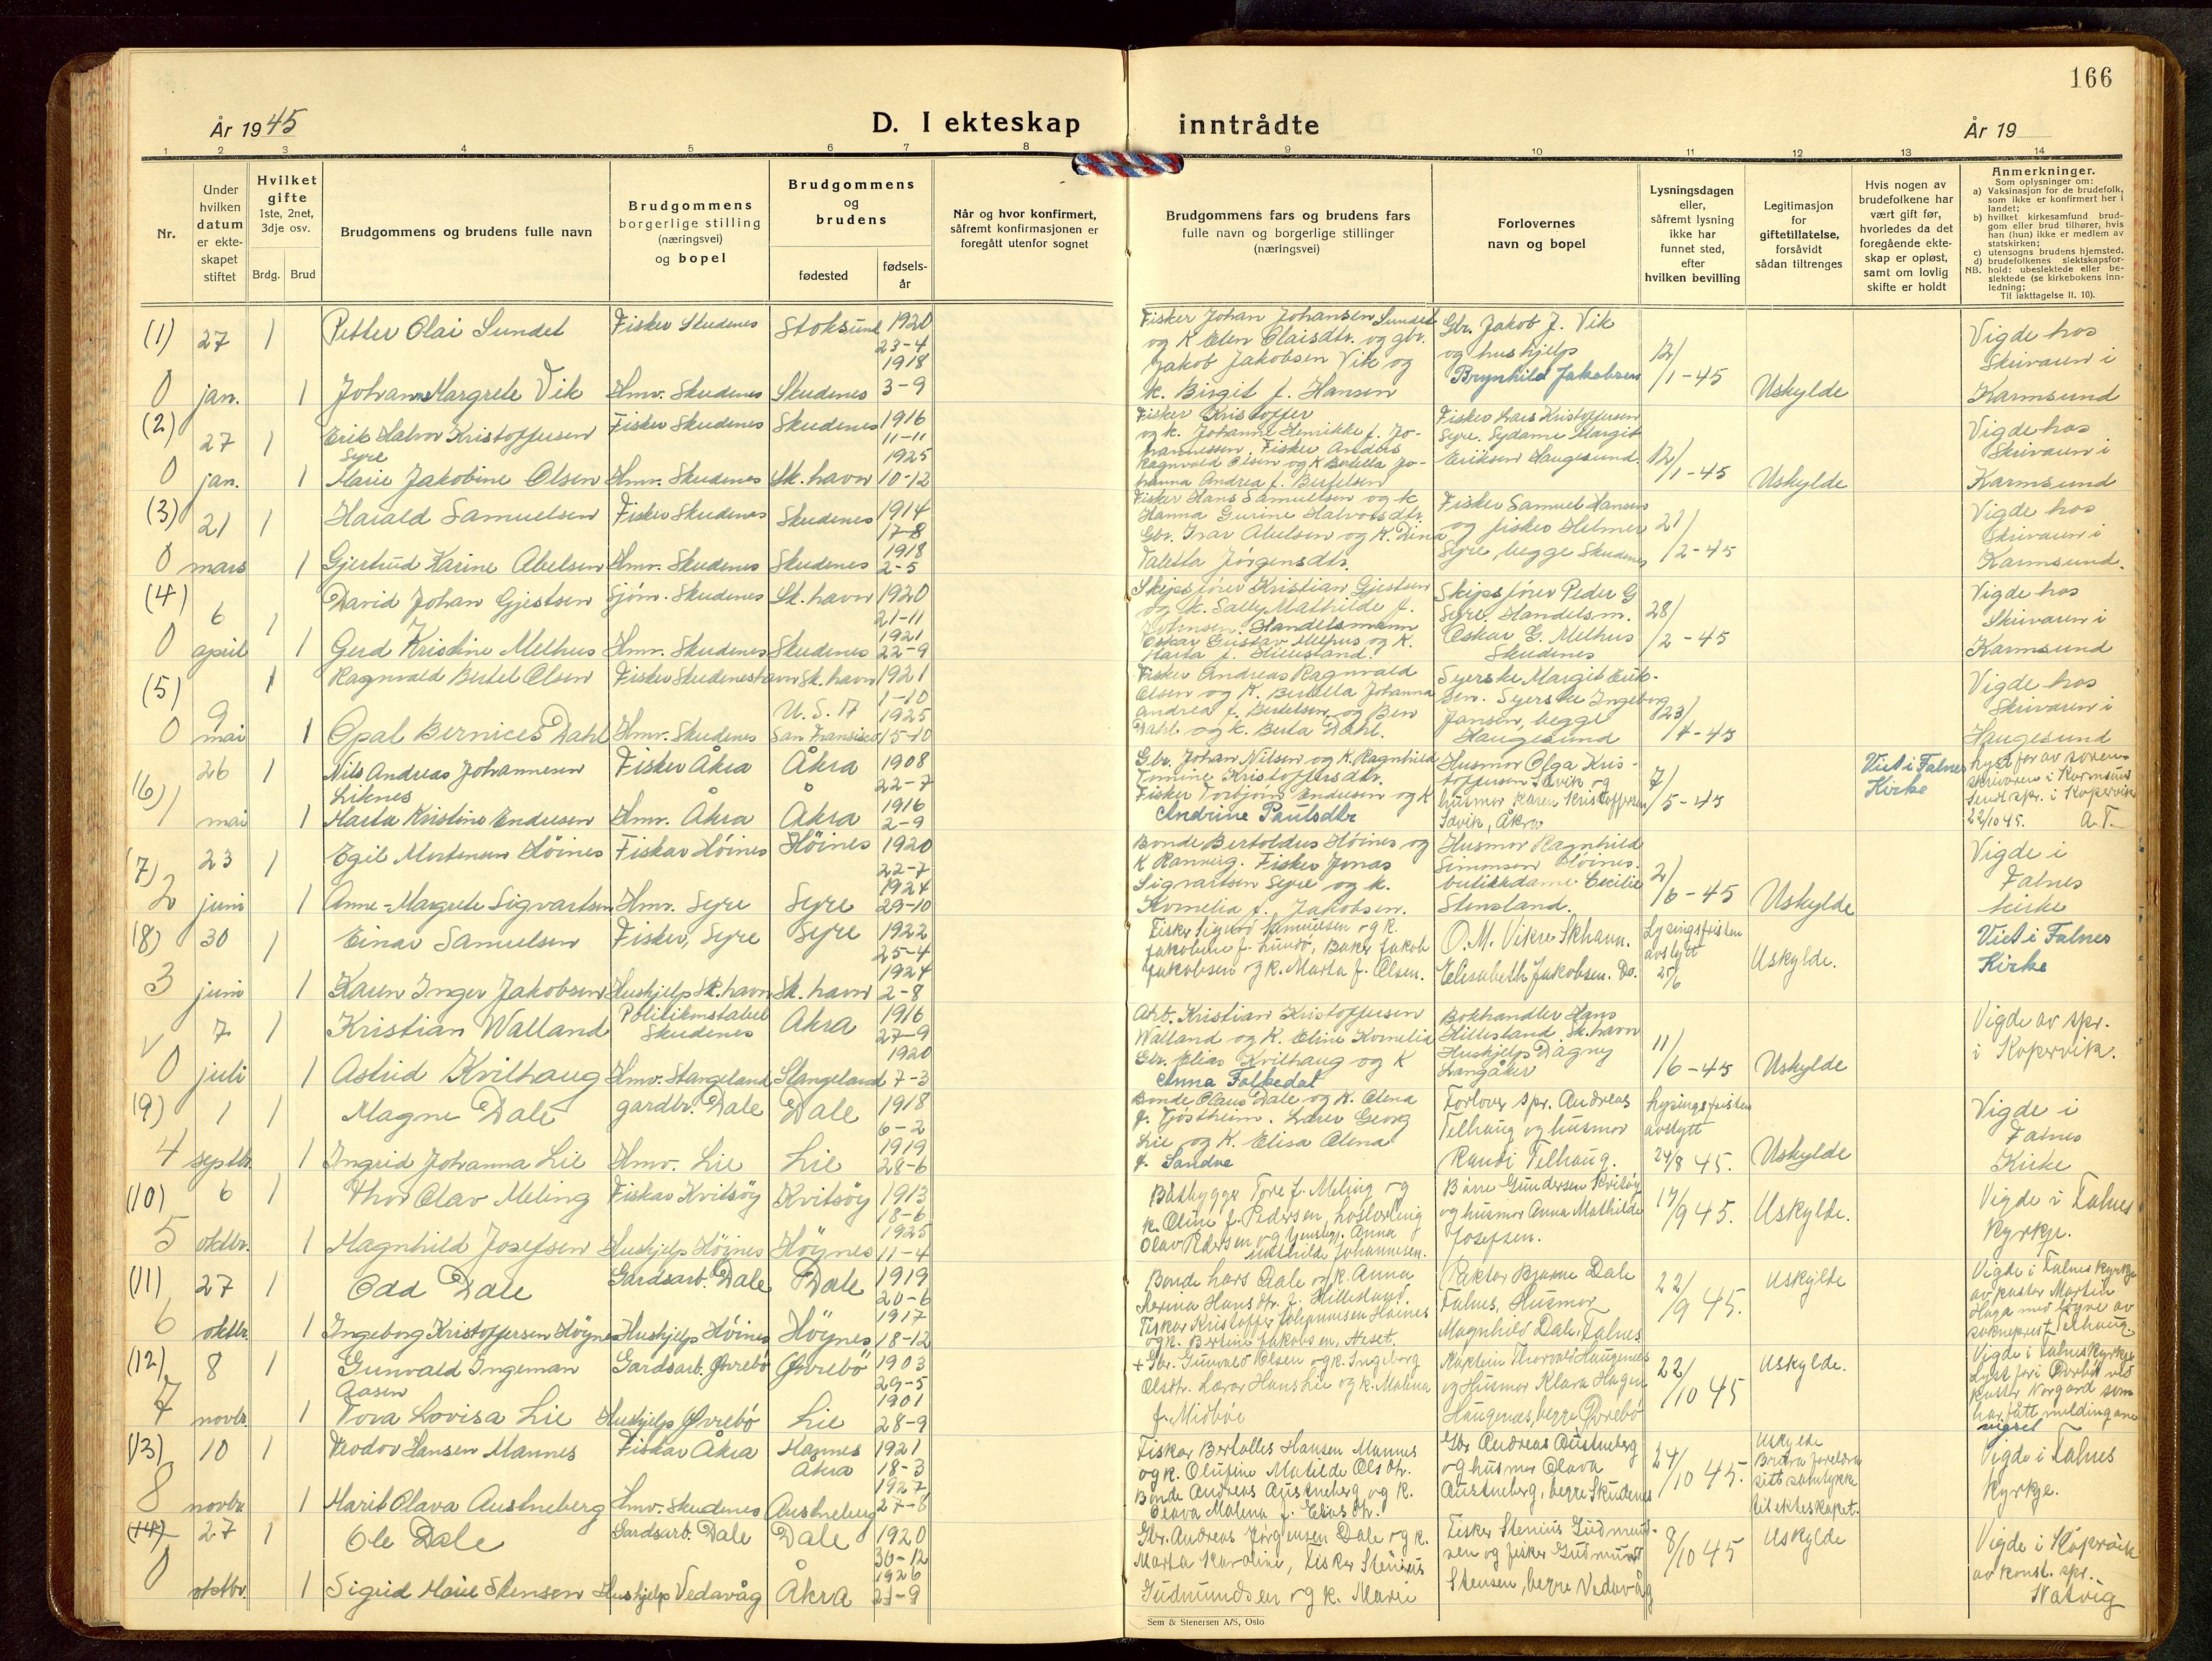 166
År 1945
D. I ekteskap inntrådte
År 19
1 2 3 4 5 6 7 8 9 10 11 12 13 14
Nr.
Under hvilken datum er ekteskapet stiftet
Hvilket gifte 1ste, 2net, 3dje osv.
Brdg. Brud
Brudgommens og brudens fulle navn
Brudgommens borgerlige stilling (næringsvei) og bopel
Brudgommens og brudens
fødested
fødselsår
Når og hvor konfirmert, såfremt konfirmasjonen er foregått utenfor sognet
Brudgommens fars og brudens fars fulle navn og borgerlige stillinger (næringsvei)
Forlovernes navn og bopel
Lysningsdagen eller, såfremt lysning ikke har funnet sted, efter hvilken bevilling
Legitimasjon for giftetillatelse, forsåvidt sådan tiltrenges
Hvis nogen av brudefolkene har vært gift før, hvorledes da det foregående ekteskap er opløst, samt om lovlig skifte er holdt
Anmerkninger.
Som oplysninger om:
a) Vaksinasjon for de brudefolk, som ikke er konfirmert her i landet;
b) hvilket kirkesamfund brudgom eller brud tilhører, hvis han (hun) ikke er medlem av statskirken;
c) utensogns brudens hjemsted.
d) brudefolkenes slektskapsforhold: ubeslektede eller beslektede (se kirkebokens innledning;
NB. Til iakttagelse II. 10).
(1) 27 1 Petter Olai Sundet Fisker Skudenes Stoksund 1920 23-4
0 jan. 1 Johanna Margrete Vik Hmv. Skudenes Skudenes 1918 3-9
Fisker Johan Johansen Sundet
og K Elen Olaisdtr. og gbr.
Jakob Jakobsen Vik og
k. Birgit f. Hansen
Gbr. Jakob J. Vik
og hushjelp
Brynhild Jakobsen
12/1-45 Uskylde
Vigde hos
Skrivaren i
Karmsund
(2) 27 1 Erik Halvor Kristoffersen Syre Fisker Skudenes Skudenes 1916 11-11
0 jan. 1 Marie Jakobine Olsen Hmv. Skudenes Sk.havn 1925 10-12
Fisker Kristoffer
og k. Johanne Henrikke f. Jo-
hannessen. Fisker Anders
Ragnvald Olsen og K Bertella Jo-
hanna Andrea f. Bertelsen
Fisker Lars Kristoffersen
Syre. Sydame Margit
Eriksen Haugesund.
12/1-45 Uskylde
Vigde hos
Skrivaren i
Karmsund
(3) 21 1 Harald Samuelsen Fisker Skudenes Skudenes 1914 17-8
0 mars 1 Gjertrud Karine Abelsen Hmv. Skudenes Skudenes 1918 2-5
Fisker Hans Samuelsen og k
Hanna Gurine Halvorsdtr.
Gbr. Ivar Abelsen og K. Dina
Taletta Jørgensdtr.
Fisker Samuel Hansen
og fisker Helmer
Syre, begge Skudenes
21/2-45
Vigde hos
Skrivaren i
Karmsund.
(4) 6 1 David Johan Gjestsen Sjøm. Skudenes Sk.havn 1920 21-11
0 april 1 Gerd Kristine Melhus Hmv. Skudenes Skudenes 1921 22-9
Skipsfører Kristian Gjestsen
og k. Sally Mathilde f.
Handelsmann
Oskar Gustav Melhus og K.
Marta f.
Skipsfører Peder G
Syre. Handelsm.
Oskar G. Melhus
Skudenes
28/2-45
Vigde hos
Skrivaren i
Karmsund
(5) 9 1 Ragnvald Bertel Olsen Fisker Skudeneshavn Sk.havn 1921 1-10
0 mai 1 Opal Bernices Dahl Hmv. Skudenes U.S.A San Fransisco 1925 15-10
Fisker Andreas Ragnvald
Olsen og K. Bertella Johanna
Andrea f. Bertelsen og Ben
Dahl og k. Berta Dahl.
Syerske Margit Erik-
sen. Syerske Ingeborg
Jansen, begge
Haugesund
23/4-45
Vigde hos
Skrivaren i
Haugesund
(6) 26 1 Nils Andreas Johannesen Liknes Fisker Åkra Åkra 1908 22-7
1 mai 1 Marta Kristine Endresen Hmv. Åkra Åkra 1916 2-9
Gbr. Johan Nilsen og K. Ragnhild
Tomine Kristoffersdtr.
Fisker Torbjørn Endresen og K
Andrine Paulsdtr
Husmor Olga Kris-
toffersen Sævik og
husmor Karen Kristoffersen
Sævik, Åkra
7/5-45
Viet i Falnes
Kirke
Lyst for av soren-
skrivaren i Karmsund
Sendt spr. i Kopervik
22/10 45. A.T.
(7) 23 1 Egil Mortensen Höines Fiskar Höines Höines 1920 22-7
2 juni 1 Anne-Margrete Sigvartsen Hmv. Syre Syre 1924 29-10
Bonde Bertoldus Höines og
K Ranveig. Fisker Jonas
Sigvartsen Syre og k.
Kornelia f. Jakobsen.
Husmor Ragnhild
Simonsen Höines.
butikkdame Cecilie
Stensland.
2/6-45 Uskylde
Vigde i
Falnes
kirke
(8) 30 1 Einar Samuelsen Fisker, Syre Syre 1922 25-4
3 juni 1 Karen Inger Jakobsen Hushjelp Sk.havn Sk.havn 1924 2-8
Fisker Sigurd Samuelsen og K.
Jakobine f. Lund, Baker Jakob
Jakobsen og K. Marta f. Olsen.
O.M. Vikre Skhavn.
Elisabeth Jakobsen. Do.
Lysingsfristen
avslytt
25/6
Uskylde.
Viet i Falnes
Kirke
v 7 1 Kristian Walland Politikonstabel Skudenes Åkra 1916 27-9
0 juli 1 Astrid Kvilhaug Hmv. Stangeland Stangeland 1920 7-3
Arb. Kristian Kristoffersen
Walland og K. Eline Kornelia
Gbr. Elias Kvilhaug og K
Anna Falkedal
Bokhandler Hans
Hillesland Sk.havn
Hushjelp Dagny
Langåker
11/6-45 Uskylde
Vigde av spr.
i Kopervik.
(9) 1 1 Magne Dale gardbr. Dale Dale 1918 6-2
4 septbr. 1 Ingrid Johanna Lie Hmv. Lie Lie 1919 28-6
Bonde Claus Dale og K. Elena
f. Tjøstheim. Lærer Georg
Lie og K. Elisa Olena
f. Sandve
Forlover spr. Andreas
Telhaug og husmor
Randi Telhaug.
Lysingsfristen
avslytt
24/8 45. Uskylde
Vigde i
Falnes
Kirke
(10) 6 1 Thor Olav Meling Fiskar Kvitsöy Kvitsöy 1913 18-6
5 oktbr. 1 Magnhild Josefsen Hushjelp Höynes Höynes 1925 11-4
Båtbygger Tore J. Meling og
k. Oline f. Pedersen,
Olav Pedersen og Anna
Mathilde Johannesen.
Børre Gundersen Kvitsöy
og husmor Anna Mathilde
Josefsen.
17/9 45. Uskylde.
Vigde i Falnes
kyrkje.
(11) 27 1 Odd Dale Gardsarb. Dale Dale 1919 20-6
6 oktbr. 1 Ingeborg Kristoffersen Höynes Hushjelp Höines Höynes 1917 18-12
Bonde Lars Dale og K. Anna
Hansdtr. f. Hillesland.
Fiskar Kristoffer Johannesen Höines
og k. Bertine Jakobsen,
Bjarne Dale
Falnes, Husmor
Magnhild Dale, Falnes
22/9 45. Uskylde
Vigde i Falnes kyrkje
av pastor Martin
Haga med löyve av
sokneprest Telhaug.
(12) 8 1 Gunvald Ingeman Aasen Gardsarb. Øvrebö Øvrebö 1903 29-5
7 novbr. 1 Tora Lovisa Lie Hushjelp Øvrebö Lie 1901 28-9
+ Gbr. Gunvald Olsen og k. Ingeborg
Olsdtr. Lærar Hans Lie og k. Malena
f. Midböe
Kaptein Thorvald Haugenes
og Husmor Klara Hagen
Haugenes, begge Øvrebö
22/10 45 Uskylde.
Vigde i Falnes kyrkje
Lyst for i Øvrebö ved
pastor Norgard som
har fått melding om
vigsel
(13) 10 1 Teodor Hansen Mannes Fiskar Åkra Mannes Åkra 1921 18-3
8 novbr. 1 Marit Olava Austneberg Hmv. Skudenes Austneberg 1927 27-8
Fiskar Bertolles Hansen Mannes
og k. Olufine Matilde Olsdtr.
Bonde Andreas Austneberg og K.
Olava Malena f. Eliasdtr.
Gbr Andreas Austneberg
og husmor Olava
Austneberg, begge Skudenes
24/10 45.
Uskylde
Brura foreldra
sitt samtykke
til ekteskapet.
Vigde i Falnes
kyrkje.
(14) 27 1 Ole Dale Gardsarb. Dale Dale 1920 30-12
0 oktbr. 1 Sigrid Marie Stensen Hushjelp Vedavåg Åkra 1926 21-9
Gbr. Andreas Jørgensen Dale og k.
Marta Karoline, Fisker Stenius
Gudmundsen og k. Marie
Fisker Stenius Gudmund-
sen og fisker Gudmund
Stensen, begge Vedavåg
8/10 45 Uskylde
Vigde i Kopervik
av konst. spr.
Natvig
Sem & Stenersen A/S, Oslo